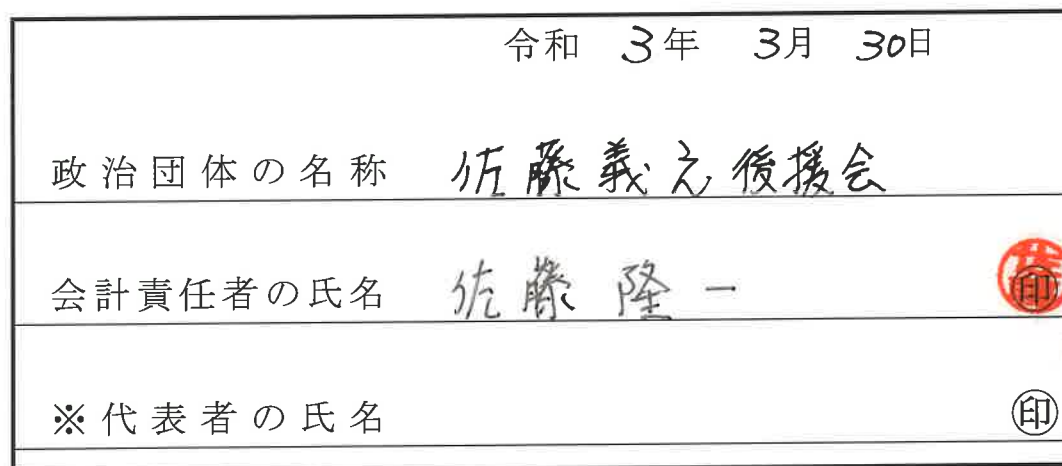 令和 3年 3月 30日
政治団体の名称 佐藤義之後援会
会計責任者の氏名 佐藤 隆一 印
※代表者の氏名 印